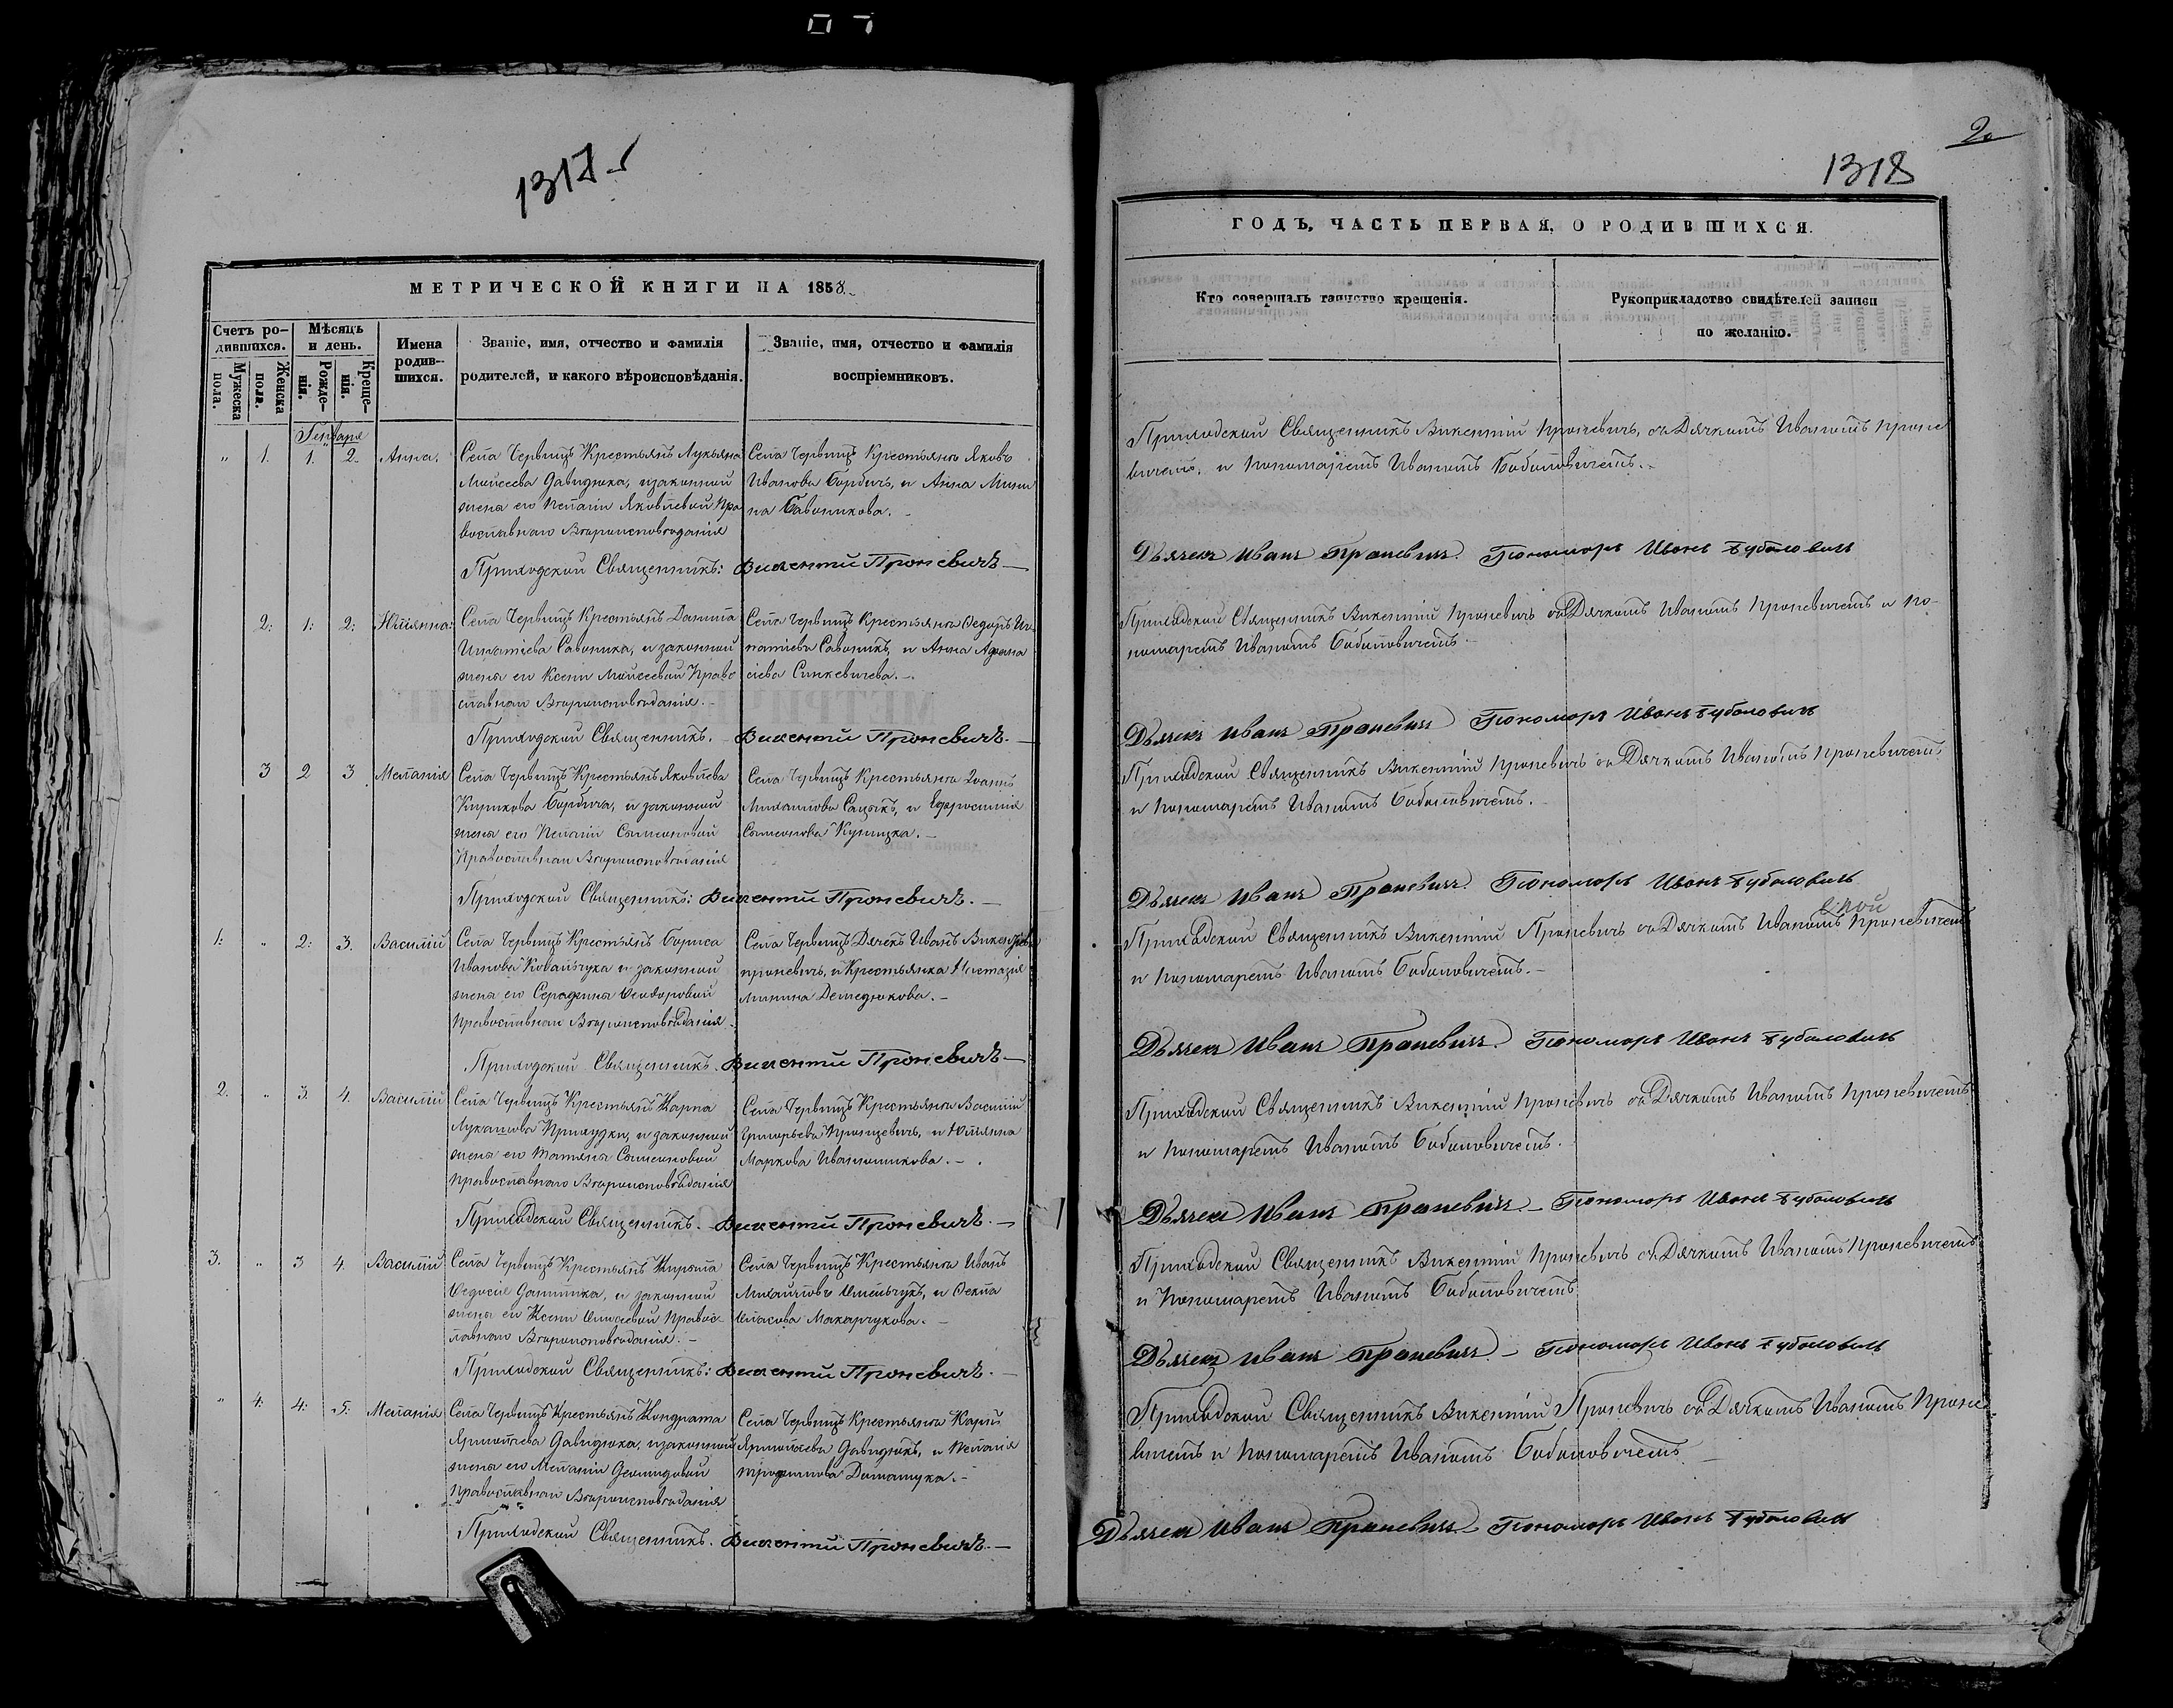 1317
МЕТРИЧЕСКОЙ КНИГИ НА 1858.
Счетъ ро-
дившихся.
Мужеска
пола.
Женска
пола.
Мѣсяцъ
и день.
Рожде-
нія.
Креще-
нія.
Имена
родив-
шихся.
Званіе, имя, отчество и фамилія
родителей, и какого вѣроисповѣданія.
Званіе, имя, отчество и фамилія
воспріемниковъ.
Генваря
" 1. 1. 2. Анна.
Села Червищъ Крестьянъ Лукьяна
Моисеева Давидюка, и законной
жена его Меланіи Яковлевой Пра
вославнаго Вѣроисповѣданія
Села Червищъ Крестьянъ Яковъ
Ивановъ Борбичъ, и Анна Мини
на Савоникова.
Приходской Священникъ: Викентий Проневичъ
2: 1: 2: Юліянна:
Села Червищъ Крестьянъ Данила
Игнатіева Савоника, и законной
жена его Ксеніи Моисеевой Право
славнаго Вѣроисповѣданія.
Села Червищъ Крестьянъ Федоръ Иг-
натіевъ Савоникъ, и Анна Афана
сіева Синкевичева.
Приходской Священникъ. Викентий Проневичъ.
3 2 3 Меланія
Села Червищъ Крестьянъ Яковлева
Кирикова Борбича, и законной
жена его Меланіи Самсоновой
Православнаго Вѣроисповѣданія
Села Червищъ Крестьянъ
Михайлова и Ефросинія
Самсонова Куницка.
Приходской Священникъ: Викентий Проневичъ.
1: " 2: 3. Василій
Села Червищъ Крестьянъ Бориса
Иванова Ковальчука и законной
жена его Серафина Феодоровой
Православнаго Вѣроисповѣданія.
Села Червищъ Дячекъ Иванъ
Проневичъ, и Крестьянка Настазія
Минина Демедюкова.
Приходской Священникъ. Викентий Проневичъ
2. " 3. 4. Василій
Села Червищъ Крестьянъ Карпа
Лукашова и законной
жена его Татьяна Самсоновой
Православнаго Вѣроисповѣданія
Села Червищъ Крестьянъ Василій
Григорьевъ и Юліянна
Маркова
Приходской Священникъ. Викентий Проневичъ.
3. " 3 4 Василій
Села Червищъ Крестьянъ Кирила
и законной
жена его Ксеніи Правос-
лавнаго Вѣроисповѣданія.
Села Червищъ Крестьянъ Иванъ
Михайловъ Омельчукъ, и Фекла
Власова Макарчукова.
Приходской Священникъ: Викентий Проневичъ.
" 4. 4. 5. Меланія
Села Червищъ Крестьянъ Кондрата
Ярмолаева Давидюка, и законной
жена его Меланіи Демидовой
Православнаго Вѣроисповѣданія
Села Червищъ Крестьянъ Карпъ
Ярмолаевъ Давидюкъ, и Меланія
Трофимова
Приходской Священникъ. Викентий Проневичъ.
2
1318
ГОДЪ, ЧАСТЬ ПЕРВАЯ, О РОДИВШИХСЯ.
Кто совершалъ таинство крещенія.
Рукоприкладство свидѣтелей записи
по желанію.
Приходской Священникъ Викентій Проневичъ, съ Дячкомъ Иваномъ Проне
вичемъ, и Пономаремъ Иваномъ Боболовичемъ.
Дьячекъ Иванъ Проневичъ. Пономарь Иванъ Буболовичъ
Приходской Священникъ Викентій Проневичъ съ Дячкомъ Иваномъ Проневичемъ и По-
номаремъ Иваномъ Боболовичемъ
Дьячекъ Иванъ Проневичъ Пономарь Иванъ Буболовичъ
Приходской Священникъ Викентій Проневичъ съ Дячкомъ Иваномъ Проневичемъ
и Пономаремъ Иваномъ Боболовичемъ.
Дьячекъ Иванъ Проневичъ. Пономарь Иванъ Буболовичъ
Приходской Священникъ Викентій Проневичъ съ Дячкомъ Иваномъ Проневичемъ
и Пономаремъ Иваномъ Боболовичемъ.
Дьячекъ Иванъ Проневичъ. Пономарь Иванъ Буболовичъ
Приходской Священникъ Викентій Проневичъ съ Дячкомъ Иваномъ Проневичемъ
и Пономаремъ Иваномъ Боболовичемъ.
Дьячекъ Иванъ Проневичъ Пономарь Иванъ Буболовичъ
Приходской Священникъ Викентій Проневичъ съ Дячкомъ Иваномъ Проневичемъ
и Пономаремъ Иваномъ Боболовичемъ
Дьячекъ Иванъ Проневичъ. Пономарь Иванъ Буболовичъ
Приходской Священникъ Викентій Проневичъ съ Дячкомъ Иваномъ Проне
вичемъ и Пономаремъ Иваномъ Боболовичемъ
Дьячекъ Иванъ Проневичъ Пономарь Иванъ Буболовичъ